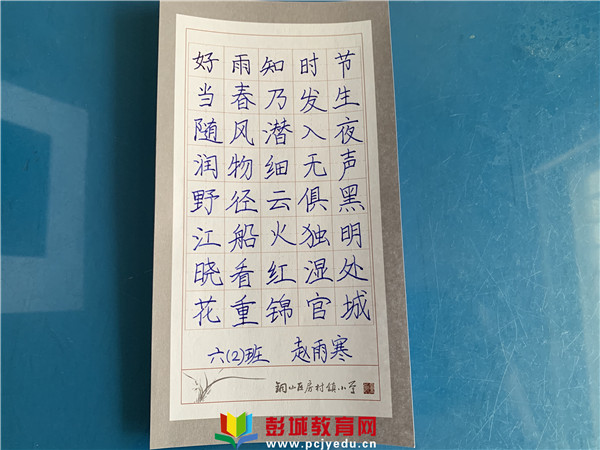 好雨知时节
当春乃发生
随风潜入夜
润物细无声
野径云俱黑
江船火独明
晓看红湿处
花重锦官城
六(2)班 赵雨寒
铜山区房村镇小学
彭城教育网
www.pcjyedu.cn